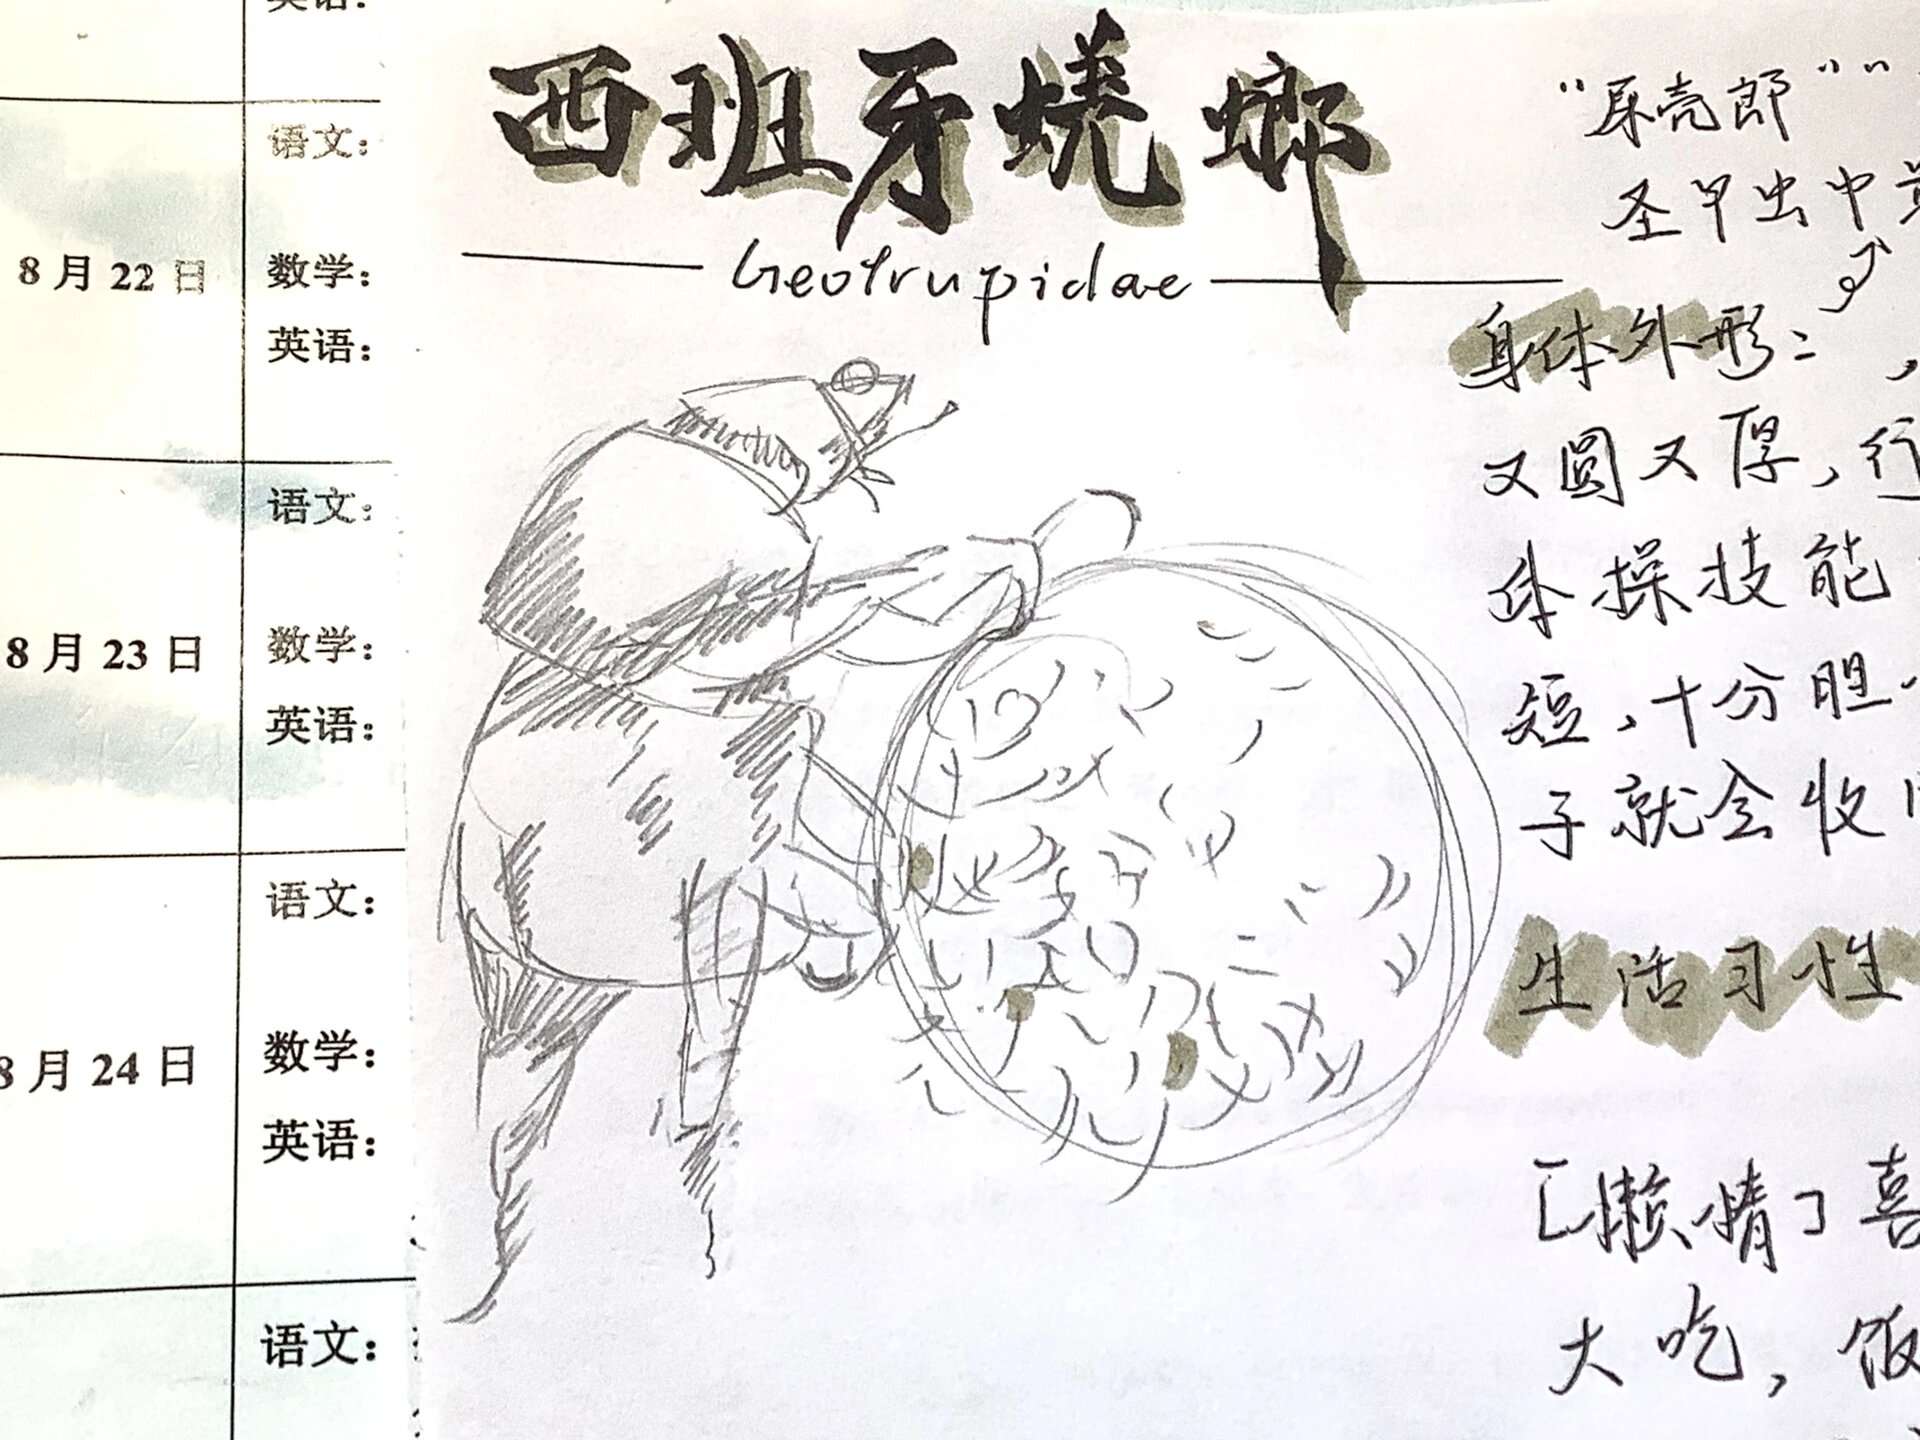 英语：
语文：
8 月 22 日
数学：
英语：
语文：
8 月 23 日
数学：
英语：
语文：
8 月 24 日
数学：
英语：
语文：
西班牙蜣螂
Geotrupidae
“屎壳郎”“
圣甲虫中
身体外形：
又圆又厚，行
体操技能
短，十分胆
子就会收
生活习性
［懒惰］喜
大吃，饭